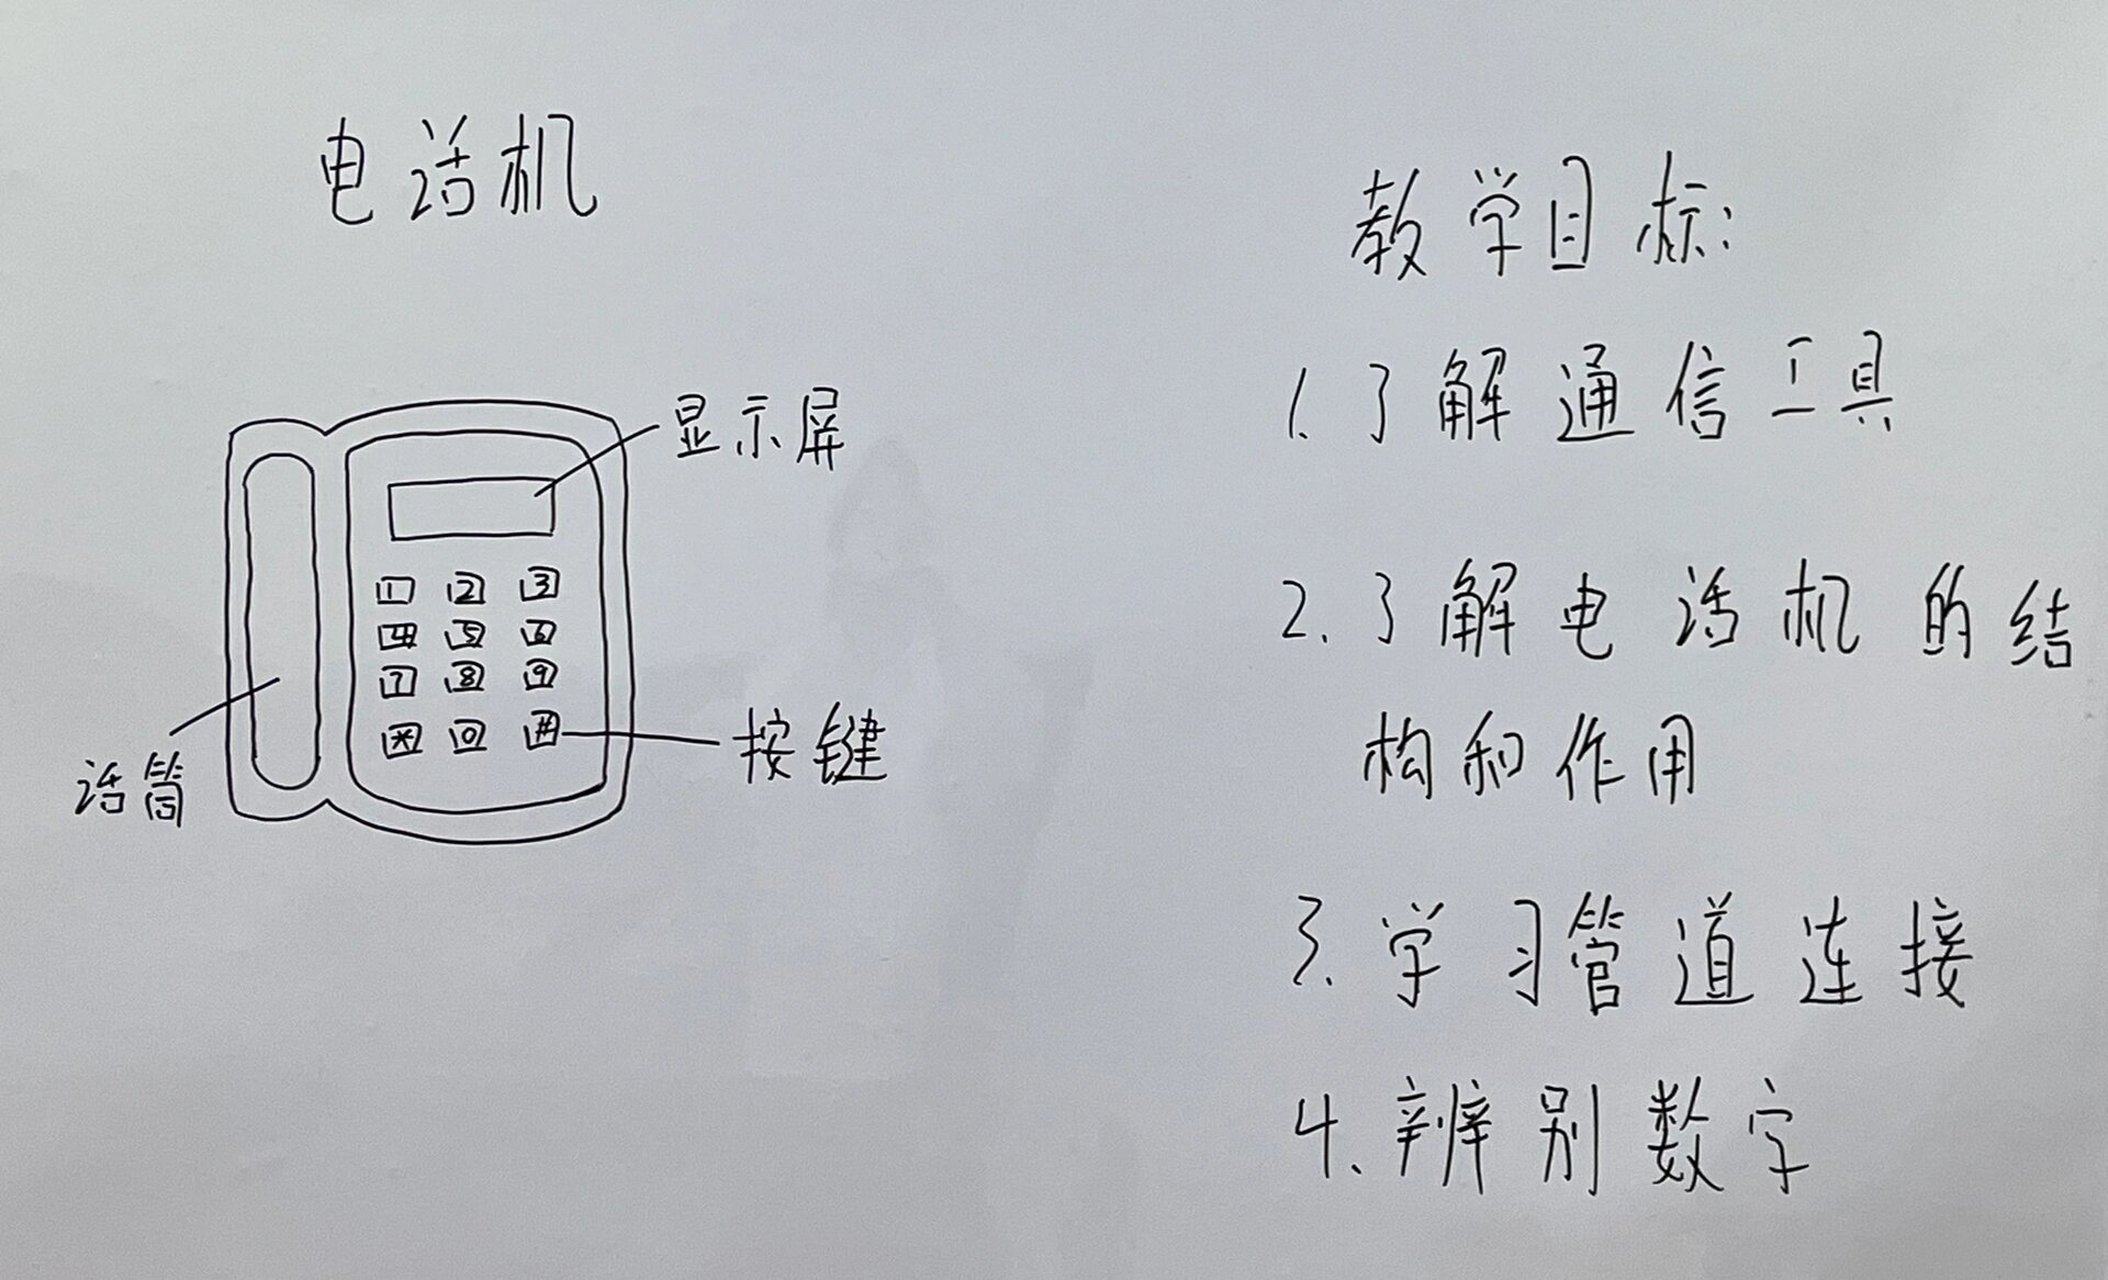 电话机
显示屏
1 2 3
4 5 6
7 8 9
* 0 #
按键
话筒
教学目标:
1.了解通信工具
2.了解电话机的结
构和作用
3.学习管道连接
4.辨别数字